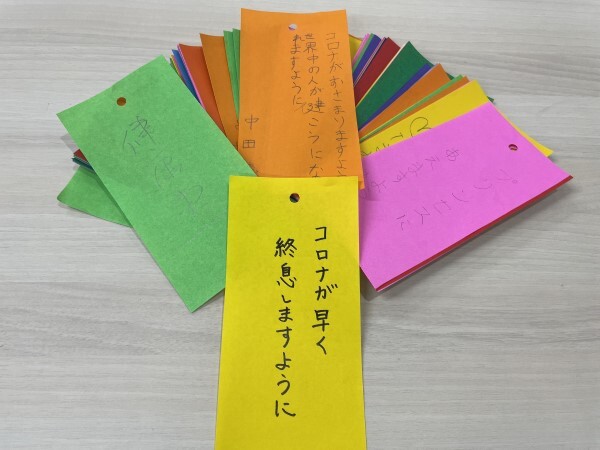 コロナがおさまりますよう
世界中の人が健こうにな
れますように
中田
プリンセスに
コロナが早く
終息しますように